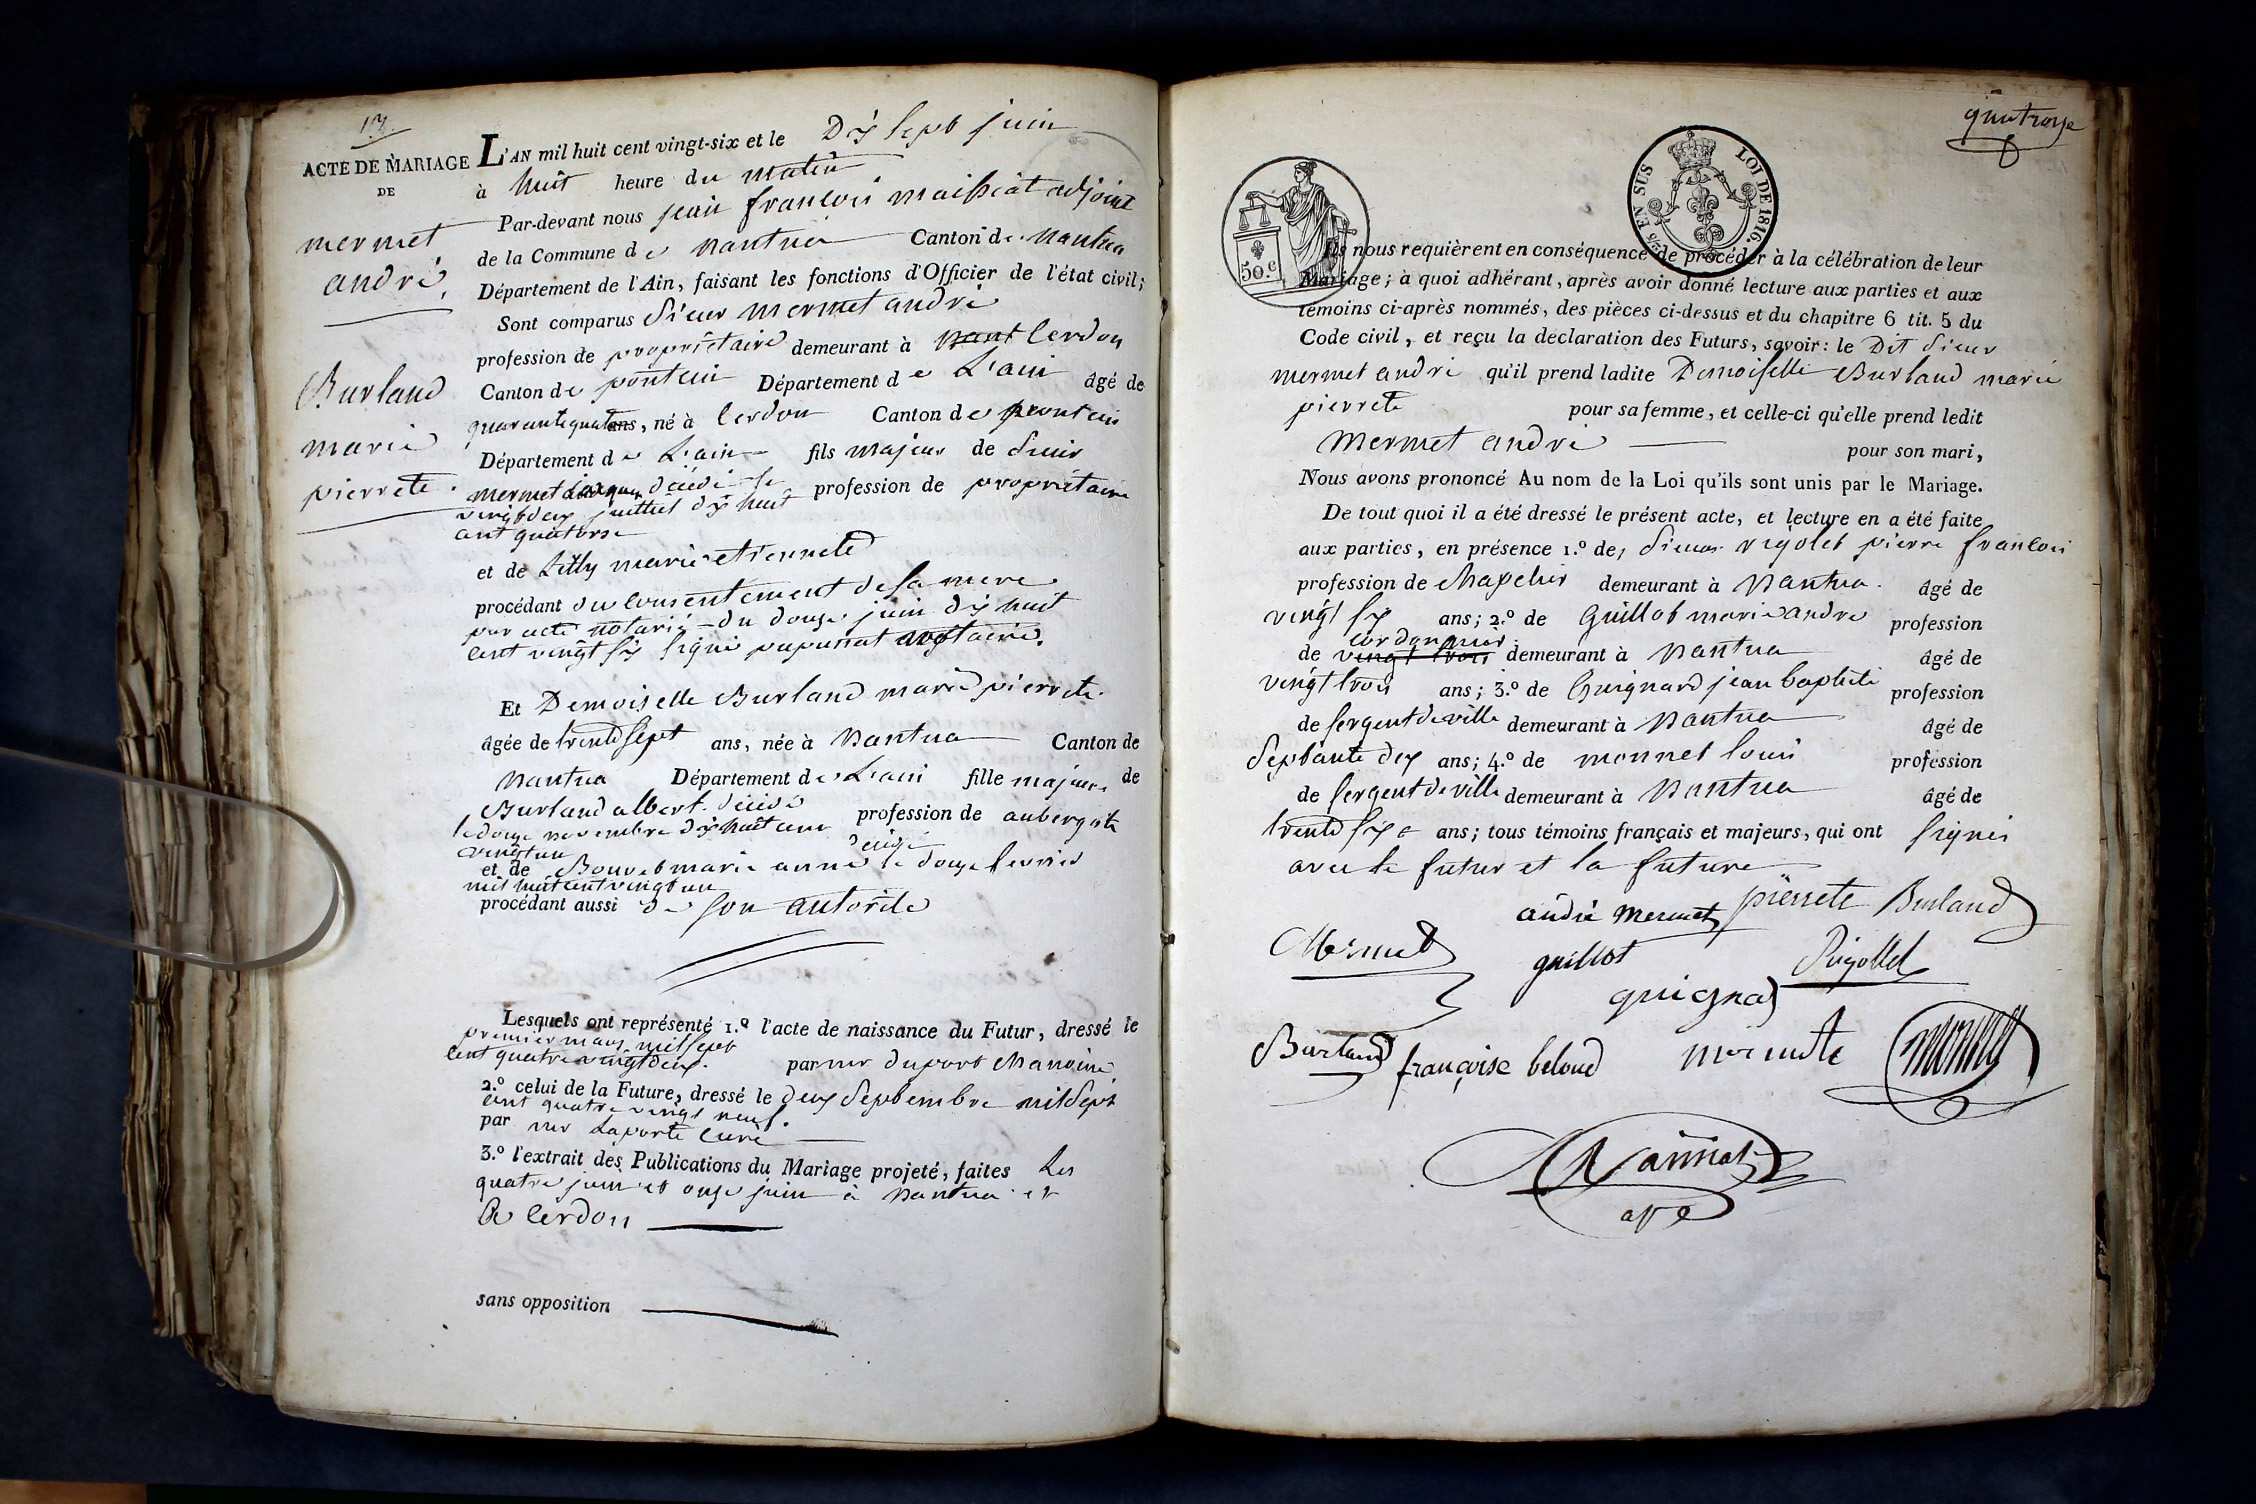 13
ACTE DE MARIAGE
DE
mermet
andré
Burland
marie
pierrete
L'AN mil huit cent vingt-six et le Dix Sept juin
à huit heure du matin
Par-devant nous jean françois maissiat adjoint
de la Commune de nantua Canton de nantua
Département de l'Ain, faisant les fonctions d'Officier de l'état civil;
Sont comparus Sieur mermet andré
profession de propriétaire demeurant à nant Cerdon
Canton de poncin Département de L'ain âgé de
quarante quatre ans, né à Cerdon Canton de poncin
Département de L'ain fils majeur de Sieur
mermet décédé le profession de propriétaire
vingt deux juillet dix huit
cent quatorse
et de marie etiennete
procédant du Consentement de Sa mere
par acte notarié du douze juin dix huit
cent vingt six Signé notaire.
Et Demoiselle Burland marie pierrete
âgée de trente Sept ans, née à Nantua Canton de
Nantua Département de L'ain fille majeure de
Burland albert décédé profession de aubergiste
le douze novembre dix huit cent
vingt un
et de Bouvet marie anne décédé le douze fevrier
mil huit cent vingt un
procédant aussi de Son autorité
Lesquels ont représenté 1.º l'acte de naissance du Futur, dressé le
premier mars mil Sept
cent quatre vingt deux. par mr duport
2.º celui de la Future, dressé le deux Septembre mil Sept
cent quatre vingt neuf.
par mr Laporte Curé
3.º l'extrait des Publications du Mariage projeté, faites Les
quatre juin et onze juin à Nantua et
à Cerdon
sans opposition
quatorze
50.c
EN SUS LOI DE 1816.
Ils nous requièrent en conséquence de procéder à la célébration de leur
Mariage; à quoi adhérant, après avoir donné lecture aux parties et aux
témoins ci-après nommés, des pièces ci-dessus et du chapitre 6 tit. 5 du
Code civil, et reçu la déclaration des Futurs, savoir: le Dit Sieur
mermet andré qu'il prend ladite Demoiselle Burland marie
pierrete pour sa femme, et celle-ci qu'elle prend ledit
Mermet andré pour son mari,
Nous avons prononcé Au nom de la Loi qu'ils sont unis par le Mariage.
De tout quoi il a été dressé le présent acte, et lecture en a été faite
aux parties, en présence 1.º de, Sieur rigolet pierre françois
profession de chapelier demeurant à Nantua. âgé de
vingt six ans; 2.º de Guillot marie andré profession
cordonnier
de vingt trois demeurant à Nantua âgé de
vingt trois ans; 3.º de Guignard jean baptiste profession
de Sergent de ville demeurant à Nantua âgé de
Septante dex ans; 4.º de monnet louis profession
de Sergent de ville demeurant à Nantua âgé de
trente six ans; tous témoins français et majeurs, qui ont Signés
avec le futur et la future
andré Mermet pierrete Burland
Mermet guillot Rigollet
guignard
Burland françoise beloud monnet